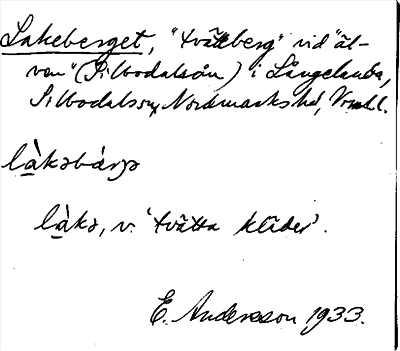 Lakeberget, "tvättberg" vid "äl-
ven" (Silbodalsån) i Långelanda,
Silbodals sn, Nordmarks hd, Vrml.
làkəbàrjə
làkə, v. 'tvätta kläder'.
E. Andersson 1933.